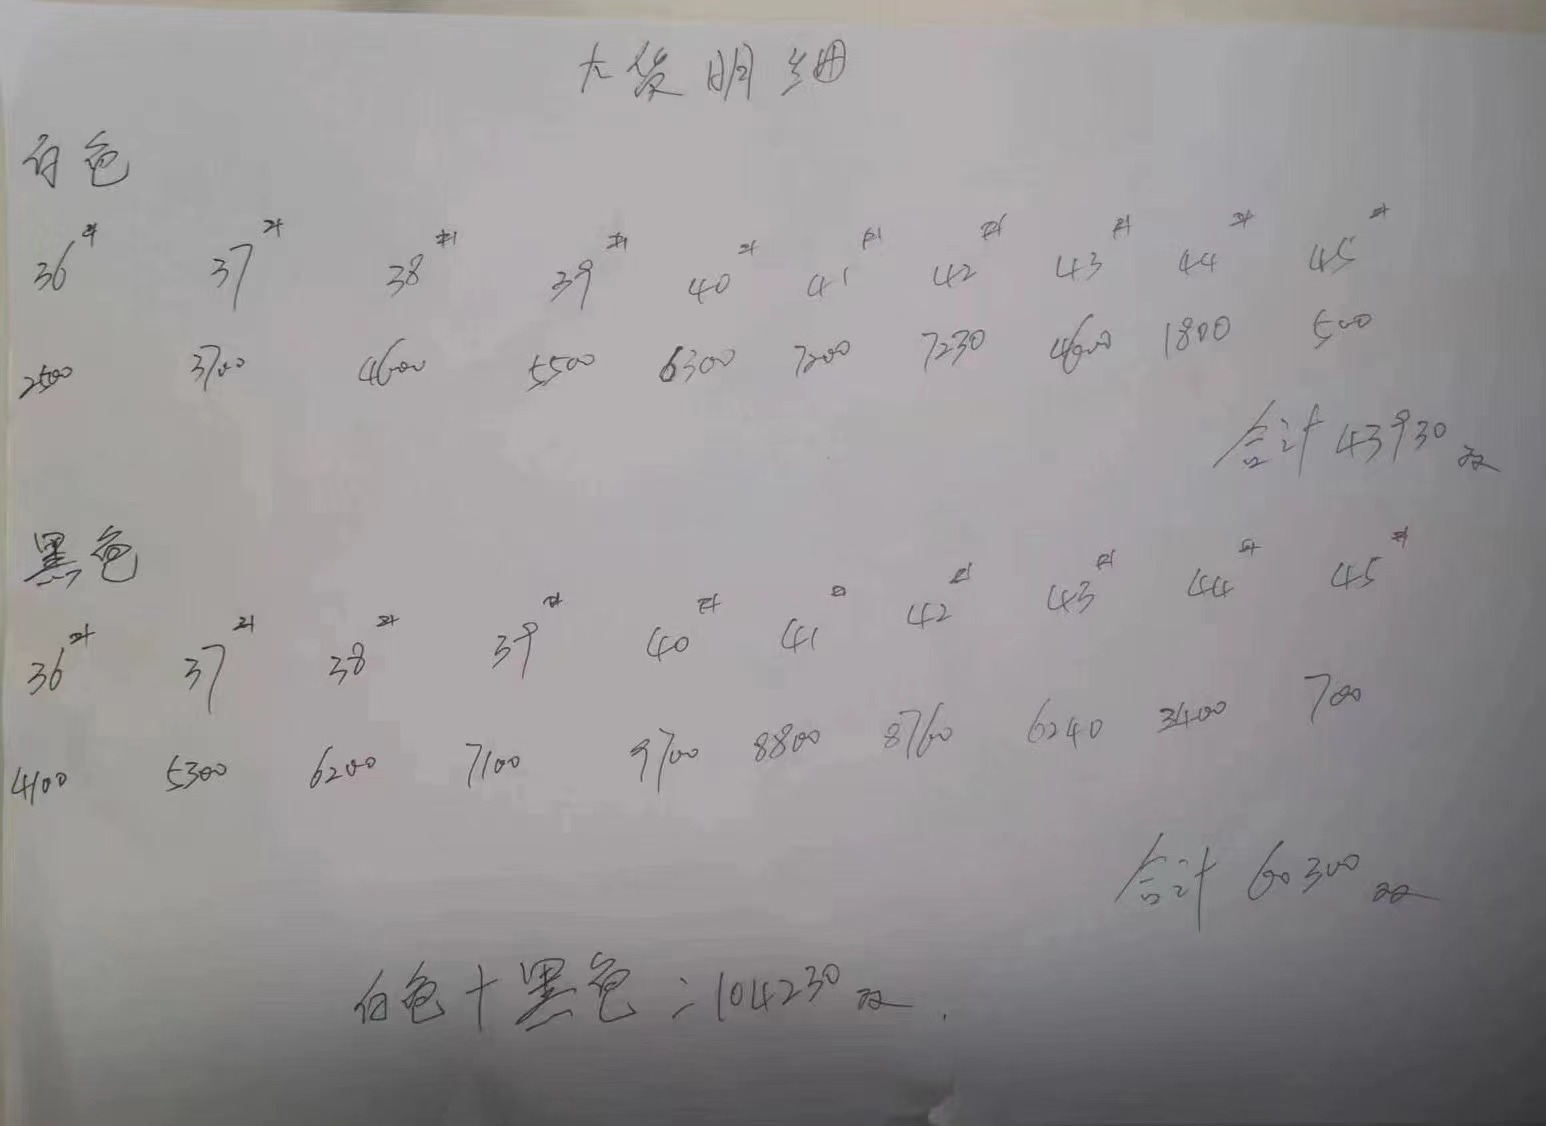 大货明细
白色
36# 37# 38# 39# 40# 41# 42# 43# 44# 45#
2500 3700 4600 5500 6300 7200 7230 4600 1800 500
合计43930双
黑色
36# 37# 38# 39# 40# 41# 42# 43# 44# 45#
4100 5300 6200 7100 9700 8800 8760 6240 3400 700
合计 60300双
白色+黑色=104230双.